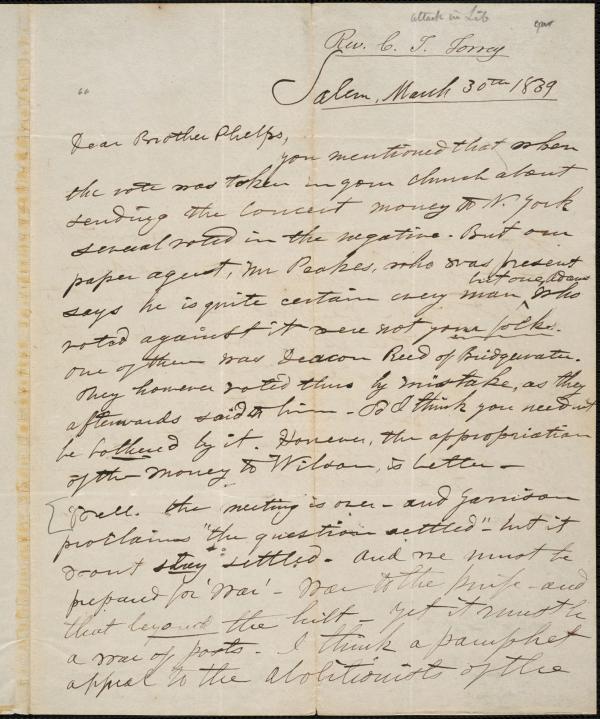 attack in Lib
Rev. C. T. Torrey
Salem, March 30th 1839
Dear Brother Phelps,
you mentioned that when
the vote was taken in your church about
sending the concert money to N. York
several voted in the negative. But our
paper agent, Mr Peakes, who was present
says he is quite certain every man, but one, Adams who
voted against it were not your folks.
One of them was Deacon Reed of Bridgewater.
They however voted thus by mistake, as they
afterwards said to him - So I think you need not
be bothered by it. However, the appropriation
of the money to Wilson, is better -
Well. the meeting is over - and Garrison
proclaims "the question settled" - but it
wont stay "settled - and we must be
prepared for 'war' - war to the knife - and
that beyond the hilt - yet it must be
a war of posts. I think a pamphlet
appeal to the abolitionists of the